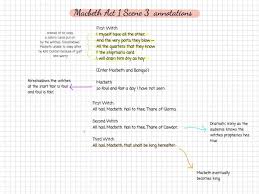 Macbeth Act 1 Scene 3 annotations
First Witch
I myself have all the other
And the very ports they blow
All the quarters that they know
I' the shipman's card
I will drain him dry as hay
(Enter Macbeth and Banquo)
Macbeth
So foul and fair a day I have not seen
Foreshadows the witches
at the start fair is foul and
foul is fair
First Witch
All hail, Macbeth, hail to thee, Thane of Glamis
Second Witch
All hail, Macbeth, hail to thee, Thane of Cawdor
Third Witch
All hail, Macbeth, that shalt be king hereafter
Dramatic irony as the
audience knows the
witches prophecies has
true
Macbeth eventually
becomes king